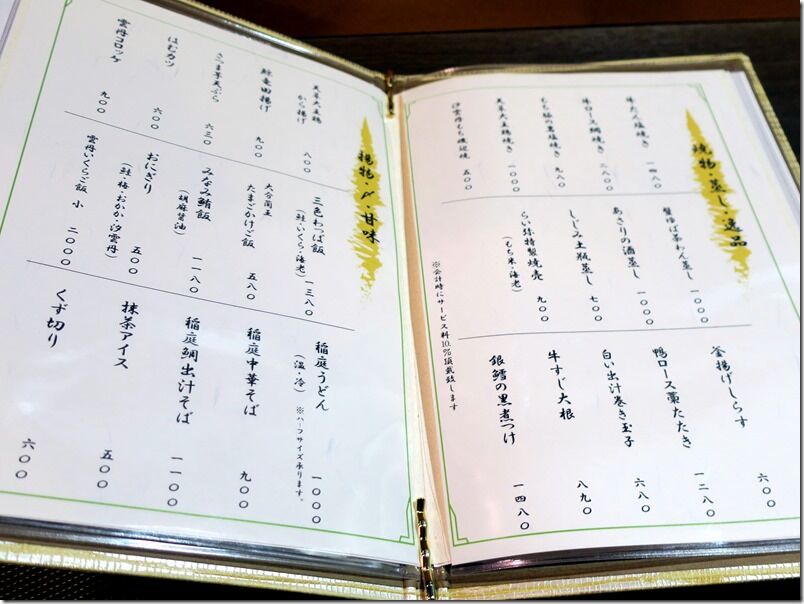 焼物・蒸し・逸品
牛たん塩焼き 一四八〇
牛ロース網焼き 二八〇〇
もち豚の藁塩焼き 九八〇
天草大王鶏焼き 一〇〇〇
汐雲丹もち磯辺焼 五〇〇
蟹ゆば茶わん蒸し 一〇〇〇
あさりの酒蒸し 一〇〇〇
しじみ土瓶蒸し 七〇〇
らい弥特製焼売 九〇〇
(もち米・海老)
釜揚げしらす 六〇〇
鴨ロース藁たたき 一二八〇
白い出汁巻き玉子 六八〇
牛すじ大根 八九〇
銀鱈の黒煮つけ 一四八〇
※会計時にサービス料10%頂戴致します
揚物・〆・甘味
天草大王鶏から揚げ 八〇〇
鯨竜田揚げ 九〇〇
さつま芋天ぷら 六三〇
はむカツ 六〇〇
雲丹コロッケ 九〇〇
三色わっぱ飯 一三八〇
(鮭・いくら・海老)
大分蘭王
たまごかけご飯 五八〇
みなみ鮪飯 一一八〇
(胡麻醤油)
おにぎり 五〇〇
(鮭・梅・おかか・汐雲丹)
雲丹いくらご飯 小 二〇〇〇
稲庭うどん 一〇〇〇
(温・冷) ※ハーフサイズ承ります。
稲庭中華そば 九〇〇
稲庭鯛出汁そば 一一〇〇
抹茶アイス 五〇〇
くず切り 六〇〇